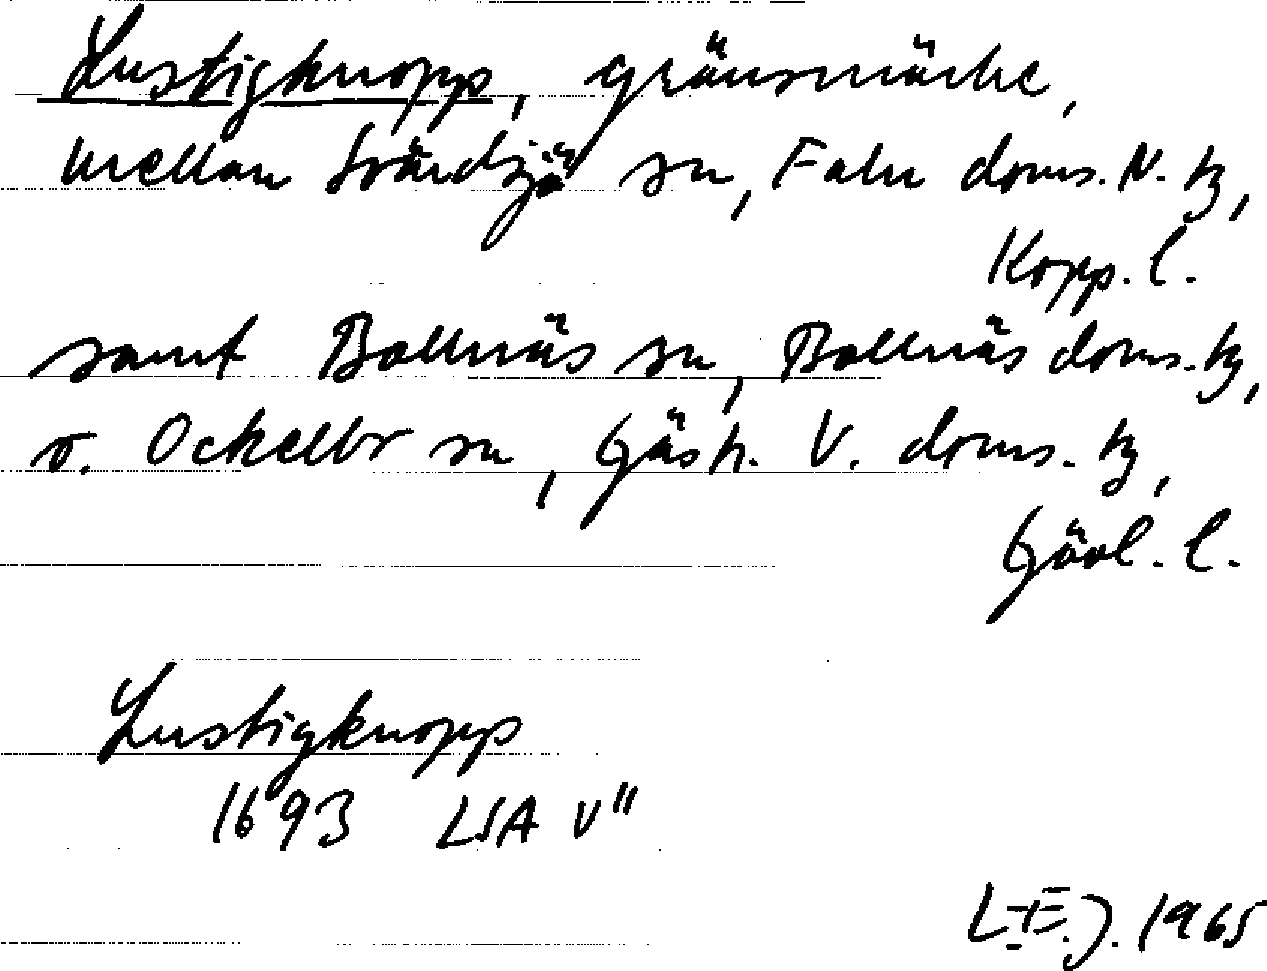 Lustigknopp, gränsmärke,
mellan Svärdsjö sn, Falu doms. N. tg,
Kopp. l.
samt Bollnäs sn, Bollnäs doms. tg,
o. Ockelbo sn, Gästr. V. doms. tg,
Gävl. l.
Lustigknopp
1693 LSA v"
L-E. J. 1965